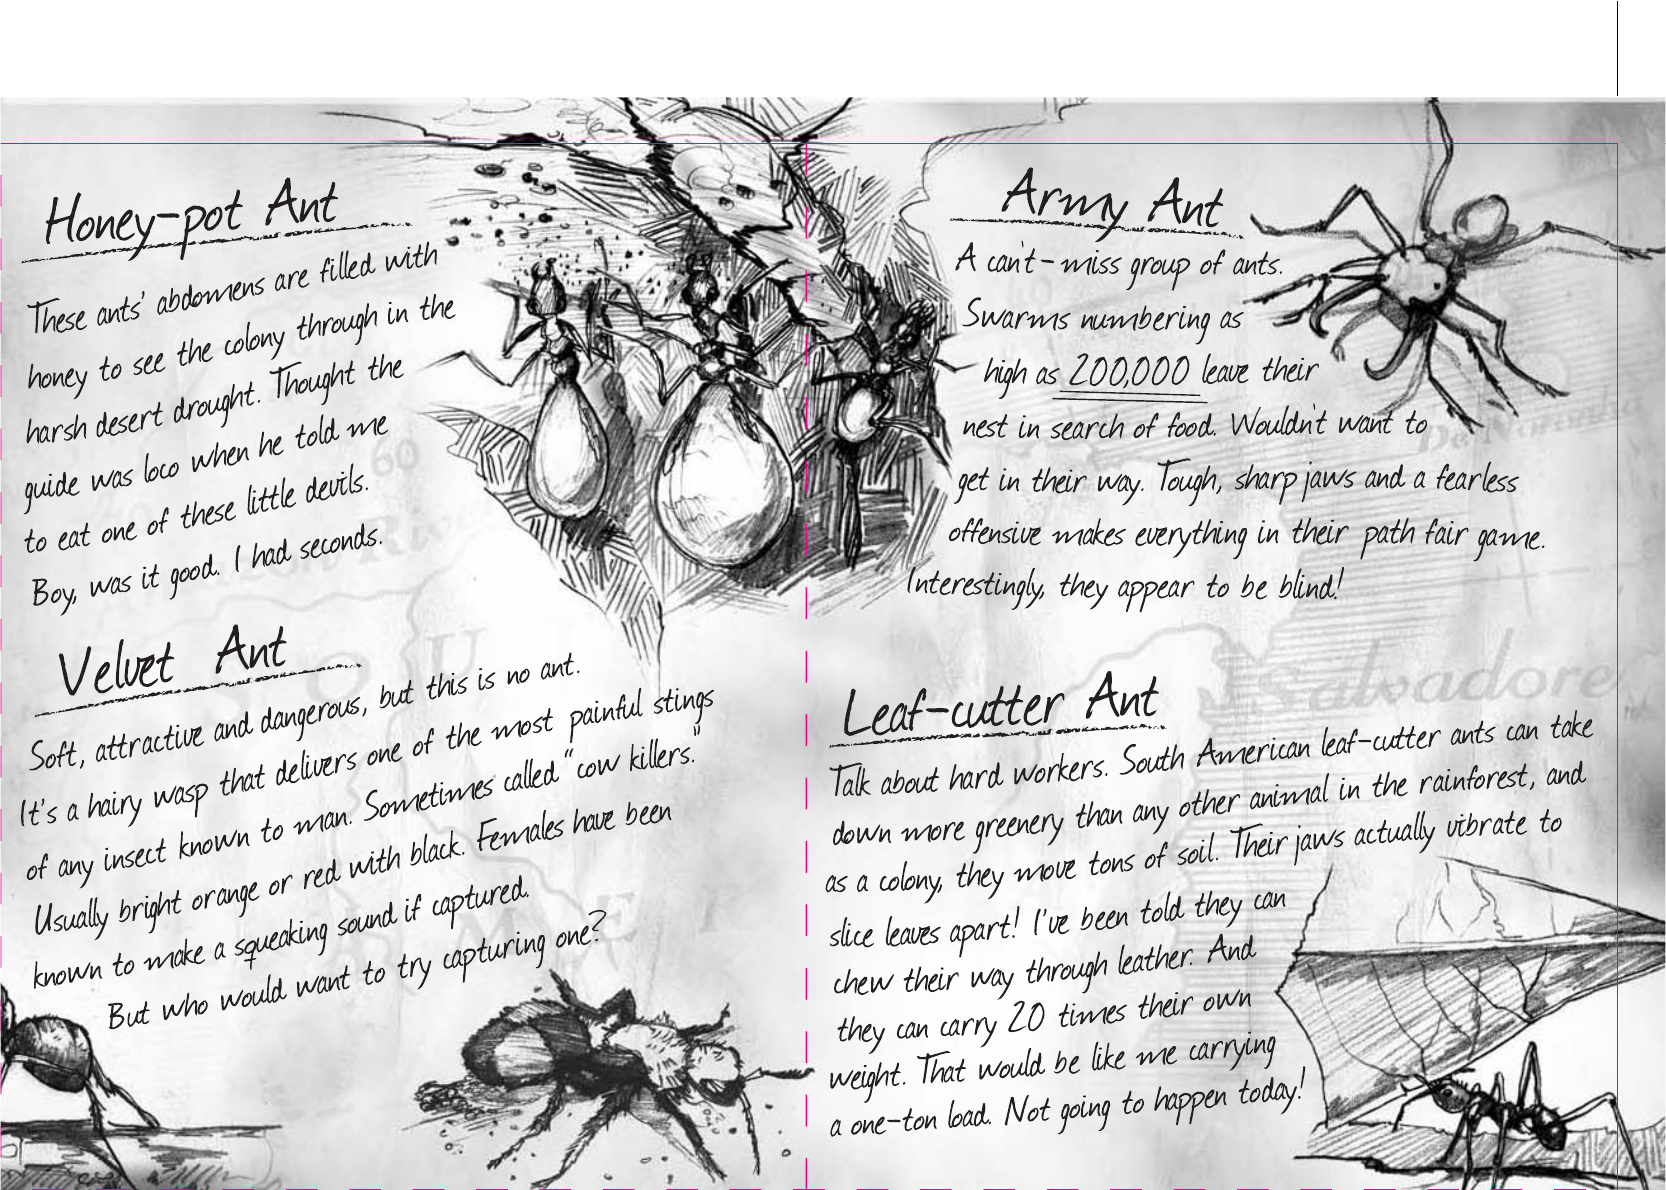 Honey-pot Ant
These ants' abdomens are filled with
honey to see the colony through in the
harsh desert drought. Thought the
guide was loco when he told me
to eat one of these little devils.
Boy, was it good. I had seconds.
Velvet Ant
Soft, attractive and dangerous, but this is no ant.
It's a hairy wasp that delivers one of the most painful stings
of any insect known to man. Sometimes called "cow killers."
Usually bright orange or red with black. Females have been
known to make a squeaking sound if captured.
But who would want to try capturing one?
Army Ant
A can't-miss group of ants.
Swarms numbering as
high as 200,000 leave their
nest in search of food. Wouldn't want to
get in their way. Tough, sharp jaws and a fearless
offensive makes everything in their path fair game.
Interestingly, they appear to be blind!
Leaf-cutter Ant
Talk about hard workers. South American leaf-cutter ants can take
down more greenery than any other animal in the rainforest, and
as a colony, they move tons of soil. Their jaws actually vibrate to
slice leaves apart! I've been told they can
chew their way through leather. And
they can carry 20 times their own
weight. That would be like me carrying
a one-ton load. Not going to happen today!
60
Salvadore